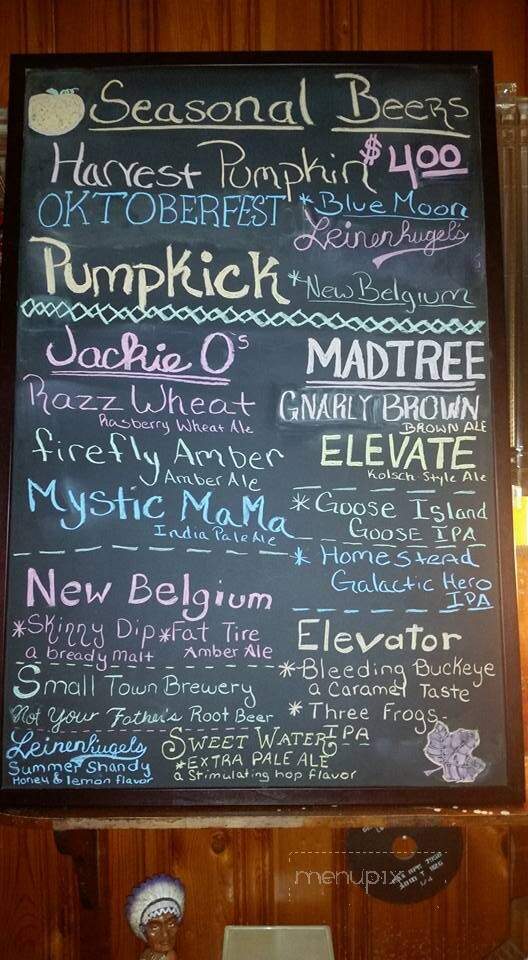 Seasonal Beers
Harvest Pumpkin $4.00
OKTOBERFEST *Blue Moon
Leinenkugel's
Pumpkick *New Belgium
Jackie O's
Razz Wheat
Rasberry Wheat Ale
firefly Amber
Amber Ale
Mystic MaMa
India Pale Ale
MADTREE
GNARLY BROWN
BROWN ALE
ELEVATE
Kolsch Style Ale
*Goose Island
Goose IPA
*Homestead
Galactic Hero
IPA
New Belgium
*Skinny Dip *Fat Tire
a bready malt Amber Ale
Elevator
*Bleeding Buckeye
a Caramel Taste
*Three Frogs
IPA
Small Town Brewery
Not Your Father's Root Beer
Leinenkugels
Summer Shandy
Honey & lemon flavor
SWEET WATER
*EXTRA PALE ALE
a Stimulating hop flavor
menupix